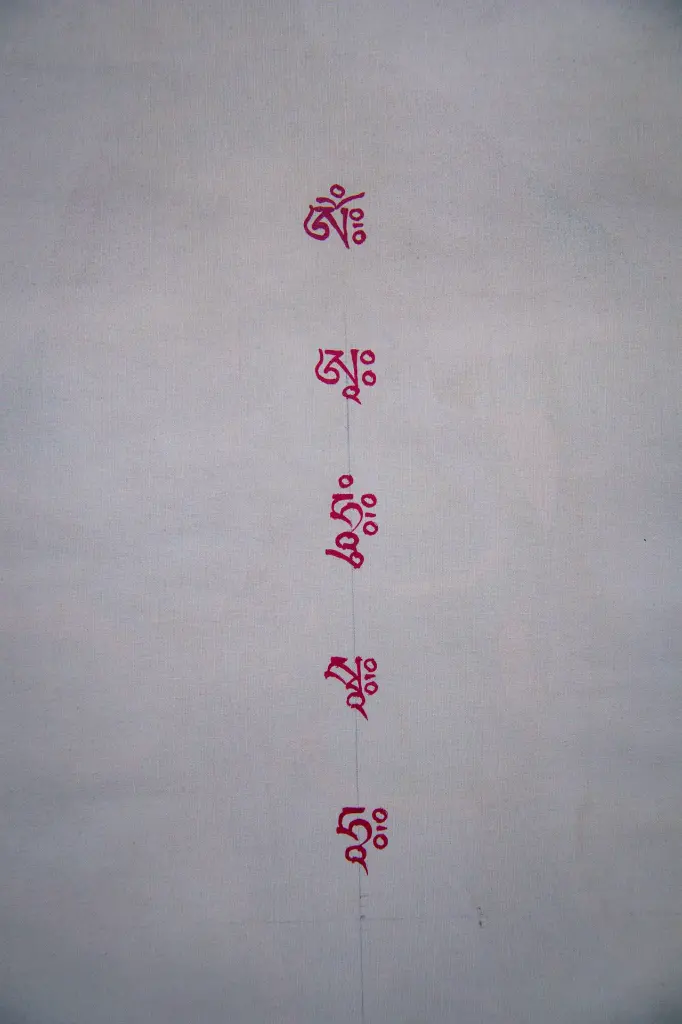 ཨོཾ༔
ཨཱཿ
ཧཱུཾ༔
སྭཱ༔
ཧཱ༔